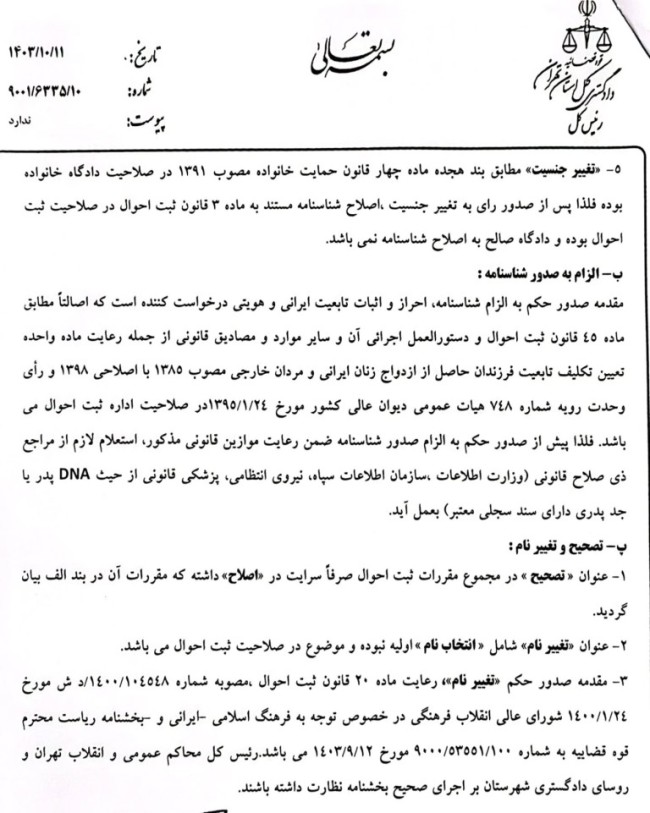 بسمه تعالی
قوه قضاییه
دادگستری کل استان تهران
رئیس کل
تاریخ: ۱۴۰۳/۱۰/۱۱
شماره: ۹۰۰۱/۶۳۳۵/۱۰
پیوست: ندارد
۵- «تغییر جنسیت» مطابق بند هجده ماده چهار قانون حمایت خانواده مصوب ۱۳۹۱ در صلاحیت دادگاه خانواده
بوده فلذا پس از صدور رای به تغییر جنسیت ،اصلاح شناسنامه مستند به ماده ۳ قانون ثبت احوال در صلاحیت ثبت
احوال بوده و دادگاه صالح به اصلاح شناسنامه نمی باشد.
ب- الزام به صدور شناسنامه :
مقدمه صدور حکم به الزام شناسنامه، احراز و اثبات تابعیت ایرانی و هویتی درخواست کننده است که اصالتاً مطابق
ماده ٤٥ قانون ثبت احوال و دستورالعمل اجرائی آن و سایر موارد و مصادیق قانونی از جمله رعایت ماده واحده
تعیین تکلیف تابعیت فرزندان حاصل از ازدواج زنان ایرانی و مردان خارجی مصوب ۱۳۸۵ با اصلاحی ۱۳۹۸ و رأی
وحدت رویه شماره ۷۴۸ هیات عمومی دیوان عالی کشور مورخ ۱۳۹۵/۱/۲۴در صلاحیت اداره ثبت احوال می
باشد. فلذا پیش از صدور حکم به الزام صدور شناسنامه ضمن رعایت موازین قانونی مذکور، استعلام لازم از مراجع
ذی صلاح قانونی (وزارت اطلاعات ،سازمان اطلاعات سپاه، نیروی انتظامی، پزشکی قانونی از حیث DNA پدر یا
جد پدری دارای سند سجلی معتبر) بعمل آید.
پ- تصحیح و تغییر نام :
۱- عنوان « تصحیح » در مجموع مقررات ثبت احوال صرفاً سرایت در «اصلاح» داشته که مقررات آن در بند الف بیان
گردید.
۲- عنوان «تغییر نام» شامل « انتخاب نام » اولیه نبوده و موضوع در صلاحیت ثبت احوال می باشد.
۳- مقدمه صدور حکم «تغییر نام»، رعایت ماده ۲۰ قانون ثبت احوال ،مصوبه شماره ۱۴۰۰/۱۰۴۵۴۸/د ش مورخ
۱۴۰۰/۱/۲۴ شورای عالی انقلاب فرهنگی در خصوص توجه به فرهنگ اسلامی -ایرانی و -بخشنامه ریاست محترم
قوه قضاییه به شماره ۹۰۰۰/۵۳۵۵۱/۱۰۰ مورخ ۱۴۰۳/۹/۱۲ می باشد.رئیس کل محاکم عمومی و انقلاب تهران و
روسای دادگستری شهرستان بر اجرای صحیح بخشنامه نظارت داشته باشند.